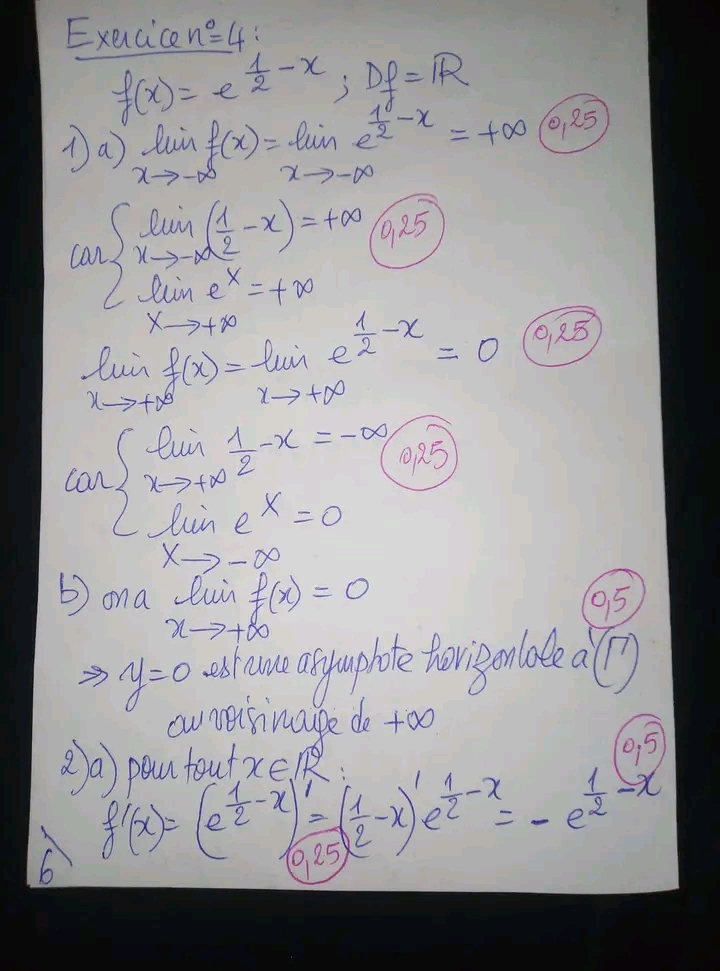 Exercice n°=4:
f(x) = e^{\frac{1}{2} - x} ; Df = ℝ
1) a) lim f(x) = lim e^{\frac{1}{2} - x} = +∞ 0,25
x→-∞ x→-∞
car { lim (\frac{1}{2} - x) = +∞ 0,25
x→-∞
lim e^X = +∞
X→+∞
lim f(x) = lim e^{\frac{1}{2} - x} = 0 0,25
x→+∞ x→+∞
car { lim \frac{1}{2} - x = -∞ 0,25
x→+∞
lim e^X = 0
X→-∞
b) on a lim f(x) = 0 0,5
x→+∞
⇒ y=0 est une asymptote horizontale à (Γ)
au voisinage de +∞
2) a) pour tout x∈ℝ: 0,5
f'(x) = (e^{\frac{1}{2} - x})' = (\frac{1}{2} - x)' e^{\frac{1}{2} - x} = - e^{\frac{1}{2} - x}
0,25
6)